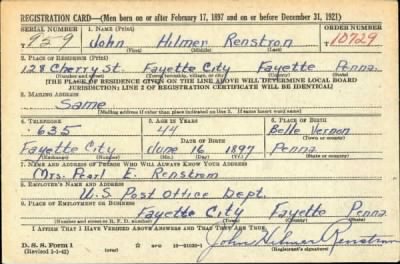 REGISTRATION CARD—(Men born on or after February 17, 1897 and on or before December 31, 1921)
SERIAL NUMBER 1. NAME (Print) ORDER NUMBER
T 959 John Hilmer Renstrom 10729
(First) (Middle) (Last)
2. PLACE OF RESIDENCE (Print)
128 Cherry St. Fayette City Fayette Penna.
(Number and street) (Town, township, village, or city) (County) (State)
[THE PLACE OF RESIDENCE GIVEN ON THE LINE ABOVE WILL DETERMINE LOCAL BOARD
JURISDICTION; LINE 2 OF REGISTRATION CERTIFICATE WILL BE IDENTICAL]
3. MAILING ADDRESS
Same
[Mailing address if other than place indicated on line 2. If same insert word same]
4. TELEPHONE 5. AGE IN YEARS 6. PLACE OF BIRTH
635 44 Belle Vernon
DATE OF BIRTH (Town or county)
Fayette City June 16 1897 Penna
(Exchange) (Number) (Mo.) (Day) (Yr.) (State or country)
7. NAME AND ADDRESS OF PERSON WHO WILL ALWAYS KNOW YOUR ADDRESS
Mrs. Pearl E. Renstrom
8. EMPLOYER'S NAME AND ADDRESS
U.S. Post Office Dept.
9. PLACE OF EMPLOYMENT OR BUSINESS
Fayette City Fayette Penna
(Number and street or R. F. D. number) (Town) (County) (State)
I AFFIRM THAT I HAVE VERIFIED ABOVE ANSWERS AND THAT THEY ARE TRUE.
D. S. S. Form 1 John Hilmer Renstrom
(Revised 1-1-42) (Registrant's signature)